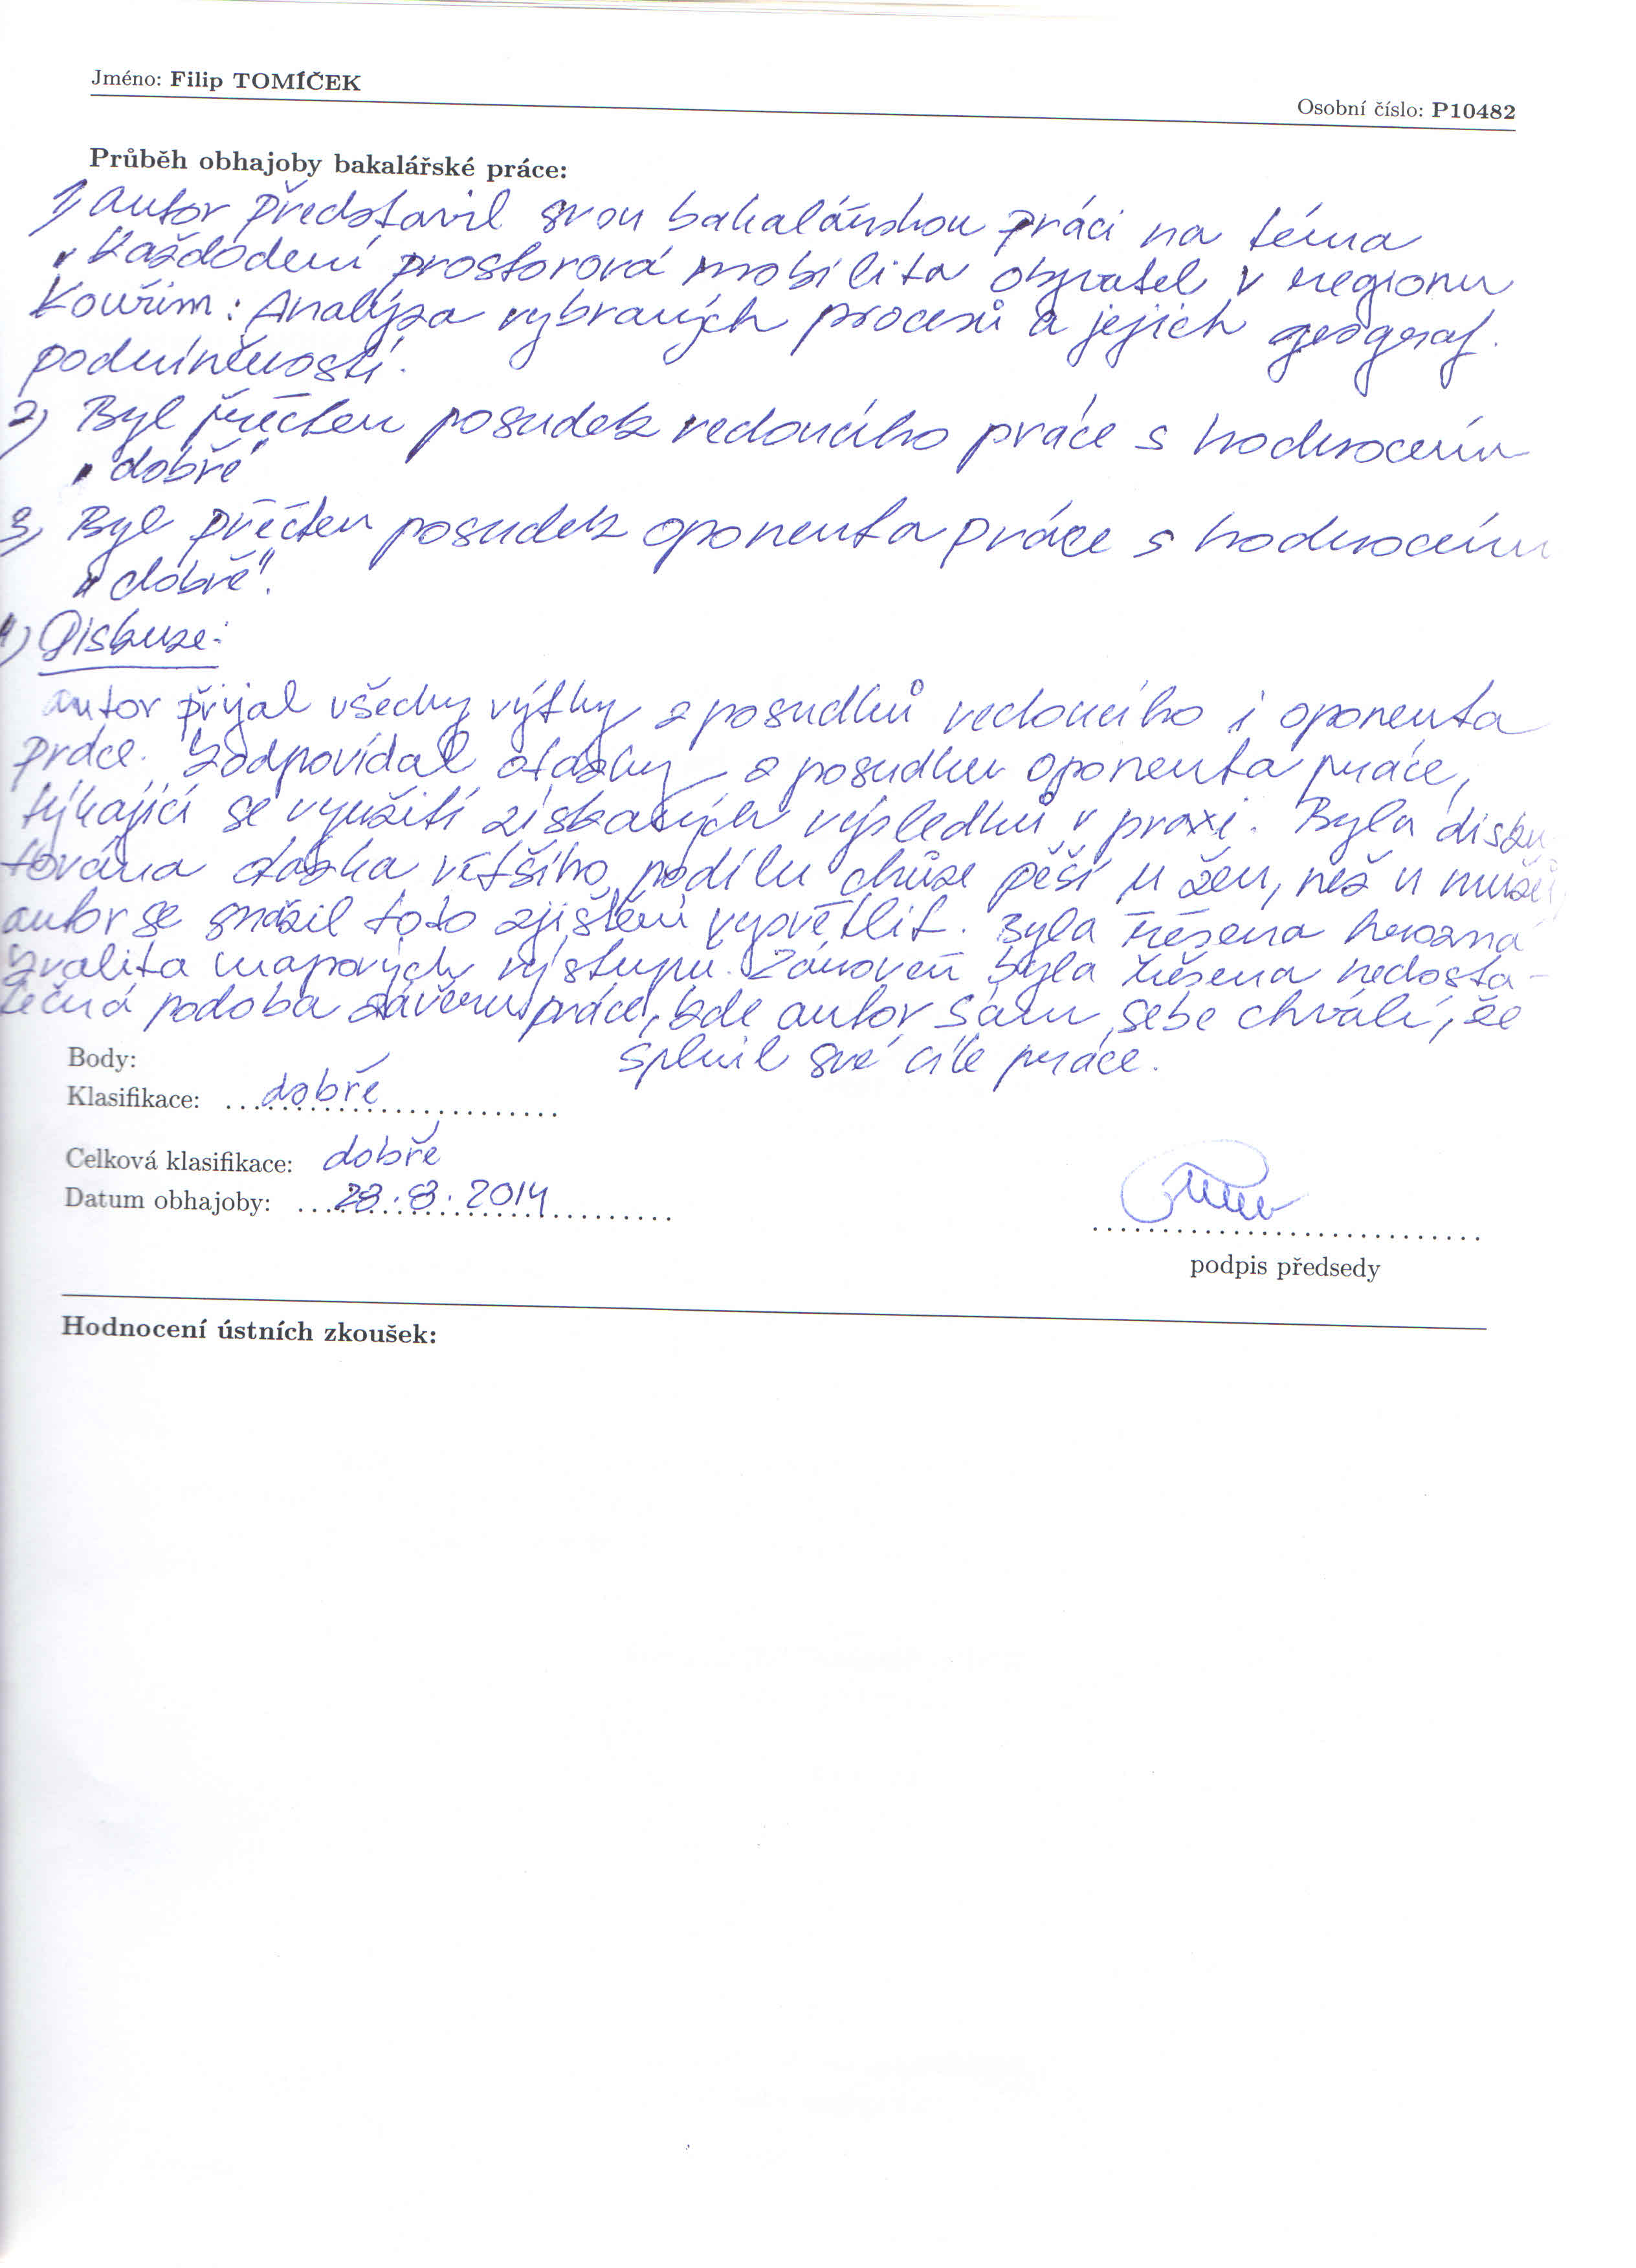 Jméno: Filip TOMÍČEK
Osobní číslo: P10482
Průběh obhajoby bakalářské práce:
1) autor představil svou bakalářskou práci na téma
„Každodení prostorová mobilita obyvatel v regionu
Kouřim: Analýza vybraných procesů a jejich geograf.
podmíněností.
2) Byl přečten posudek vedoucího práce s hodnocením
„dobře"
3) Byl přečten posudek oponenta práce s hodnocením
„dobře".
4) Diskuze:
autor přijal všechy výtky z posudků vedoucího i oponenta
práce. Zodpovídal otázky z posudku oponenta práce,
týkající se využití získaných výsledků v praxi. Byla disku
tována otázka většího podílu chůze pěší u žen, než u mužů
autor se snažil toto zjištění vysvětlit. Byla řešena
kvalita mapových výstupů. Zároveň byla řešena nedosta-
tečná podoba závěru práce, kde autor sám sebe chválí, že
splnil své cíle práce.
Body:
Klasifikace: dobře
Celková klasifikace: dobře
Datum obhajoby: 28.8.2014
podpis předsedy
Hodnocení ústních zkoušek: